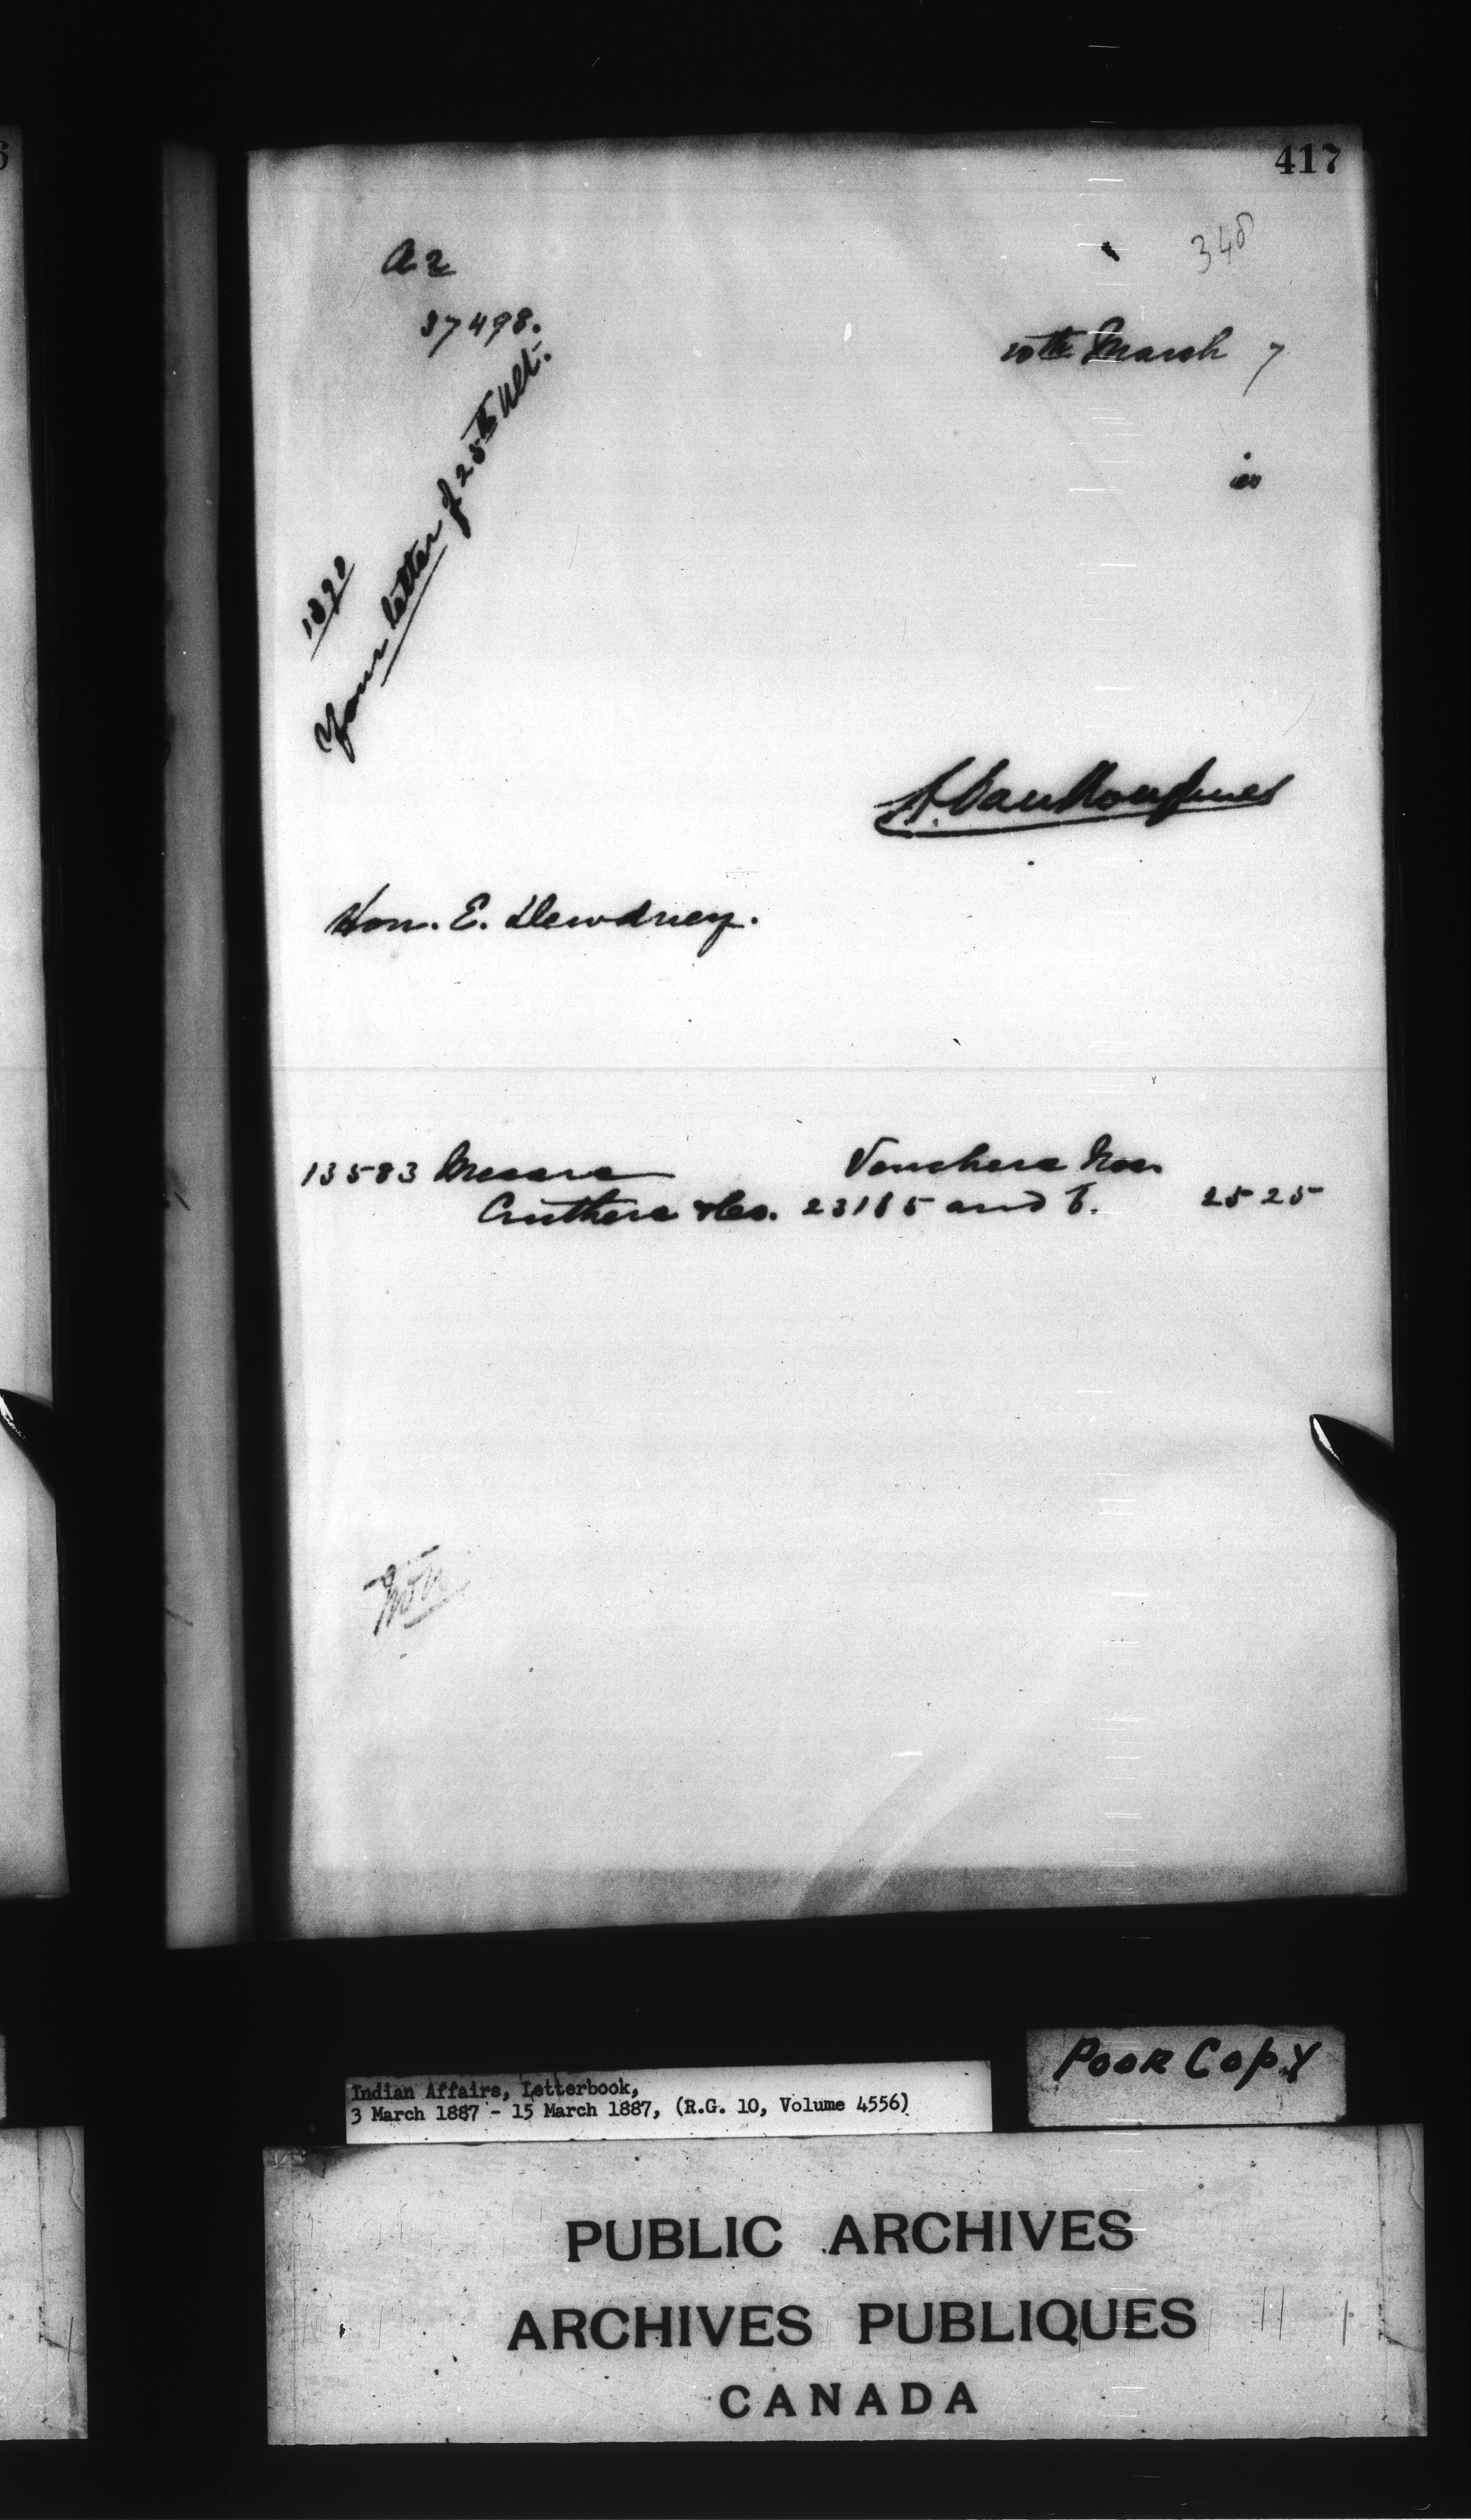 417
348
A 2
37498.
10th March 7
is
1390
Your letter of 25th Ult.
L. Vankoughnet
Hon. E. Dewdney.
13583 Messrs Vouchers Nos.
Cruthers & Co. 23185 and 6. 25 25
Indian Affairs, Letterbook,
3 March 1887 - 15 March 1887, (R.G. 10, Volume 4556)
POOR COPY
PUBLIC ARCHIVES
ARCHIVES PUBLIQUES
CANADA